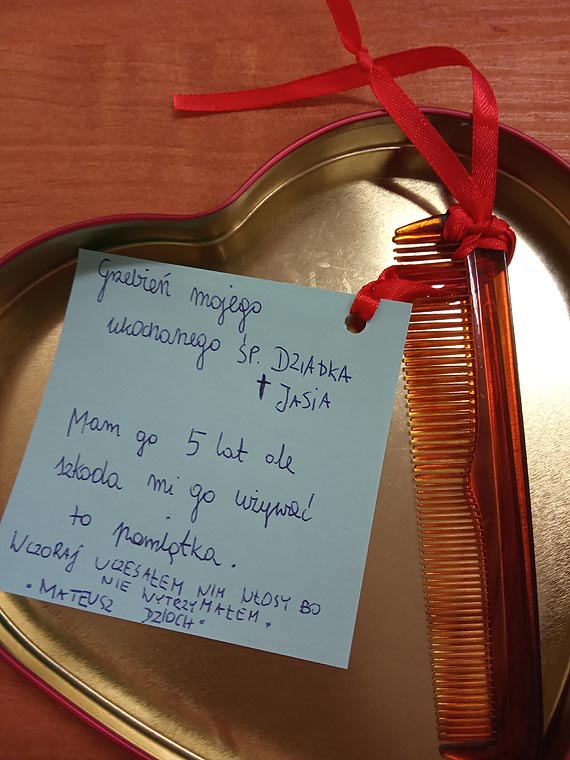 Grzebień mojego
ukochanego ŚP. DZIADKA
✝ JASIA
Mam go 5 lat ale
szkoda mi go używać
to pamiątka.
WCZORAJ UCZESAŁEM NIM WŁOSY BO
NIE WYTRZYMAŁEM.
• MATEUSZ DZIOCH •